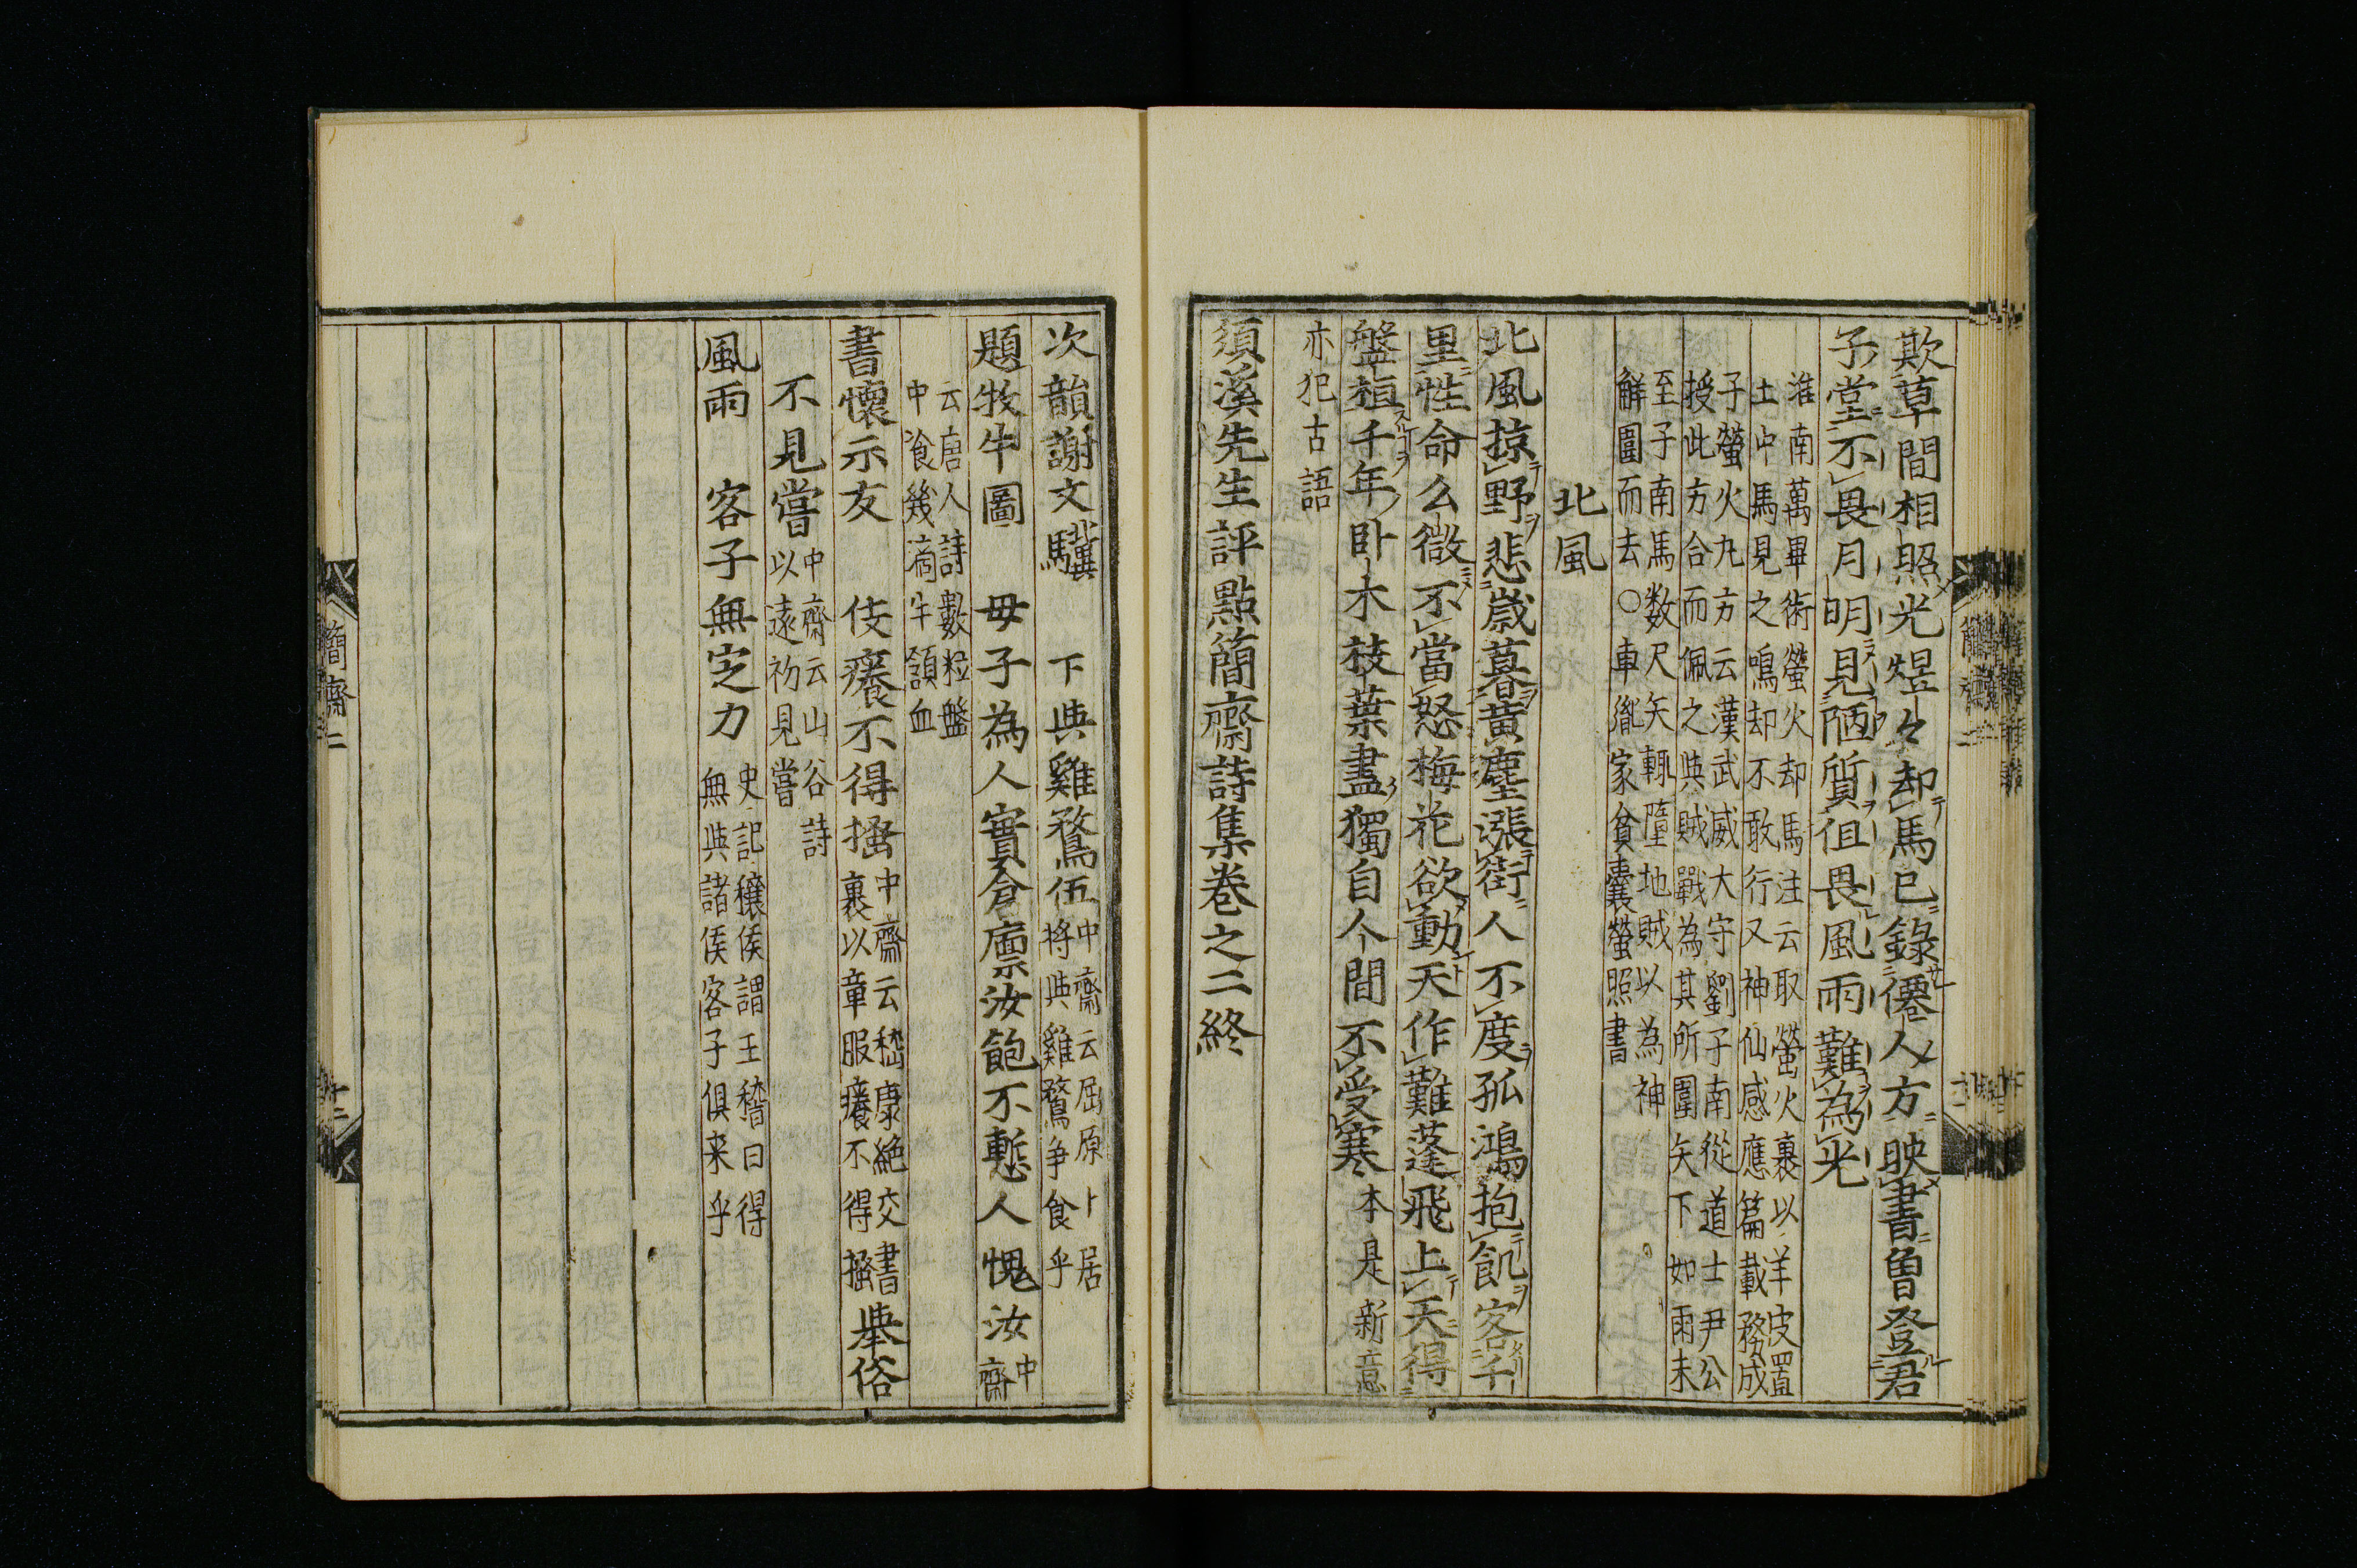 欺草間相照光煜々却馬已錄僊人方映書魯登君
子堂不畏月明見陋質但畏風雨難為光
淮南萬畢術螢火却馬注云取螢火裹以羊皮置
土中馬見之鳴却不敢行又神仙感應篇載務成
子螢火丸方云漢武威大守劉子南從道士尹公
授此方合而佩之與賊戰為其所圍矢下如雨未
至子南馬数尺矢輒墮地賊以為神
解圍而去○車胤家貧囊螢照書
北風
北風掠野悲歲暮黃塵漲街人不度孤鴻抱飢客千
里性命么微不當怒梅花欲動天作難蓬飛上天得
盤桓千年卧木枝葉盡獨自人間不受寒本是新意
亦犯古語
須溪先生評點簡齋詩集卷之二終
次韻謝文驥 下與雞鶩伍中齋云屈原卜居
將與雞鶩争食乎
題牧牛圖 毋子為人實倉廪汝飽不慙人愧汝中齋
云唐人詩數粒盤
中飡幾滴牛領血
書懷示友 伎癢不得搔中齋云嵇康絶交書
裹以章服癢不得搔 擧俗
不見嘗中齋云山谷詩
以遠初見嘗
風雨 客子無定力史記穰侯謂王稽曰得
無與諸侯客子俱来乎
簡齋二
十二